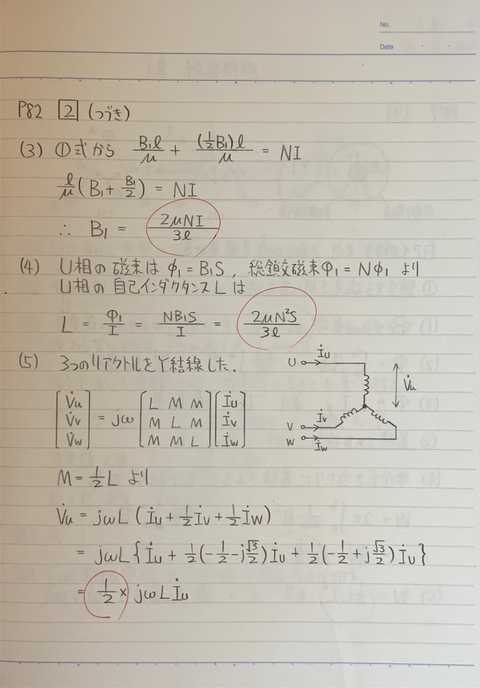 No.
Date
P82 [2] (つづき)
(3) ①式から B₁l/μ + (½B₁)l/μ = NI
l/μ (B₁ + B₁/2) = NI
∴ B₁ = 2μNI/3l
(4) U相の磁束は φ₁ = B₁S, 総鎖交磁束Φ₁ = Nφ₁ より
U相の自己インダクタンスLは
L = Φ₁/I = NB₁S/I = 2μN²S/3l
(5) 3つのリアクトルをY結線した.
U İu V̇u
V İv
W İw
[V̇u V̇v V̇w] = jω [L M M M L M M M L] [İu İv İw]
M = ½L より
V̇u = jωL (İu + ½İv + ½İw)
= jωL { İu + ½(-½ - j√3/2)İu + ½(-½ + j√3/2)İu }
= ½ × jωLİu